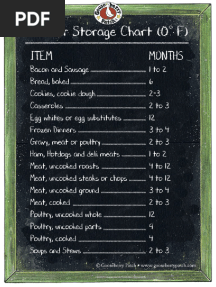 PDF
Storage Chart (0° F)
ITEM MONTHS
Bacon and Sausage 1 to 2
Bread, baked 6
Cookies, cookie dough 2-3
Casseroles 2 to 3
Egg whites or egg substitutes 12
Frozen Dinners 3 to 4
Gravy, meat or poultry 2 to 3
Ham, Hotdogs and deli meats 1 to 2
Meat, uncooked roasts 4 to 12
Meat, uncooked steaks or chops 4 to 12
Meat, uncooked ground 3 to 4
Meat, cooked 2 to 3
Poultry, uncooked whole 12
Poultry, uncooked parts 9
Poultry, cooked 4
Soups and Stews 2 to 3
© Gooseberry Patch • www.gooseberrypatch.com